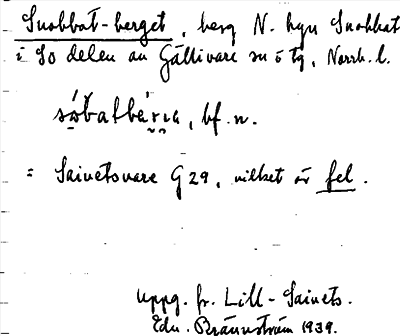 Snobbat-berget, berg N. byn Snobbat
i SO delen av Gällivare sn o tg, Norrb. l.
bf. n.
= Saivetsvare G 29, vilket är fel.
Uppg. fr. Lill-Saivets.
Edv. Brännström 1939.